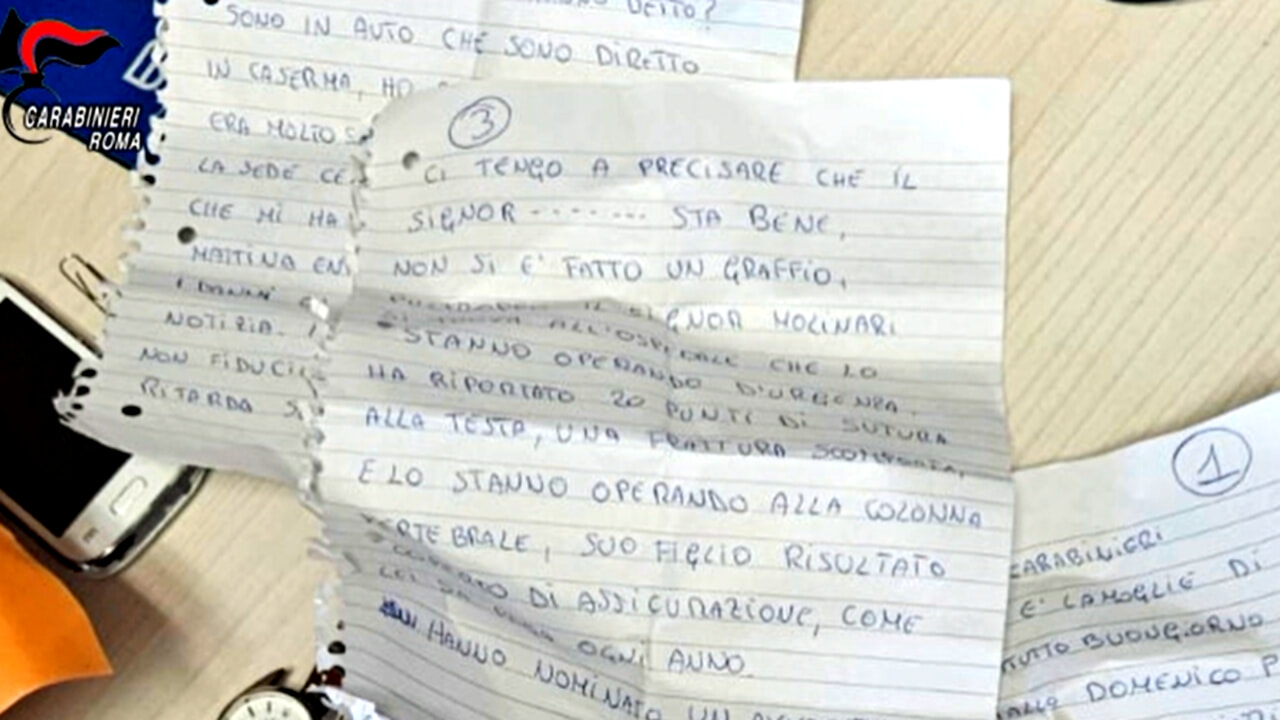 CARABINIERI
ROMA
DETTO?
SONO IN AUTO CHE SONO DIRETTO
IN CASERMA, HO
ERA MOLTO
LA SEDE
CHE MI HA
MATTINA
NOTIZIA.
NON FIDUCI
RITARDA
3
CI TENGO A PRECISARE CHE IL
SIGNOR -------- STA BENE,
NON SI E' FATTO UN GRAFFIO,
IL SIGNOR MOLINARI
ALL'OSPEDALE CHE LO
STANNO OPERANDO D'URGENZA.
HA RIPORTATO 20 PUNTI DI SUTURA
ALLA TESTA, UNA FRATTURA SCOMPOSTA,
E LO STANNO OPERANDO ALLA COLONNA
VERTEBRALE, SUO FIGLIO RISULTATO
DI ASSICURAZIONE, COME
LEI OGNI ANNO.
HANNO NOMINATO UN
1
CARABINIERI
E' LA MOGLIE DI
TUTTO BUONGIORNO
DOMENICO P